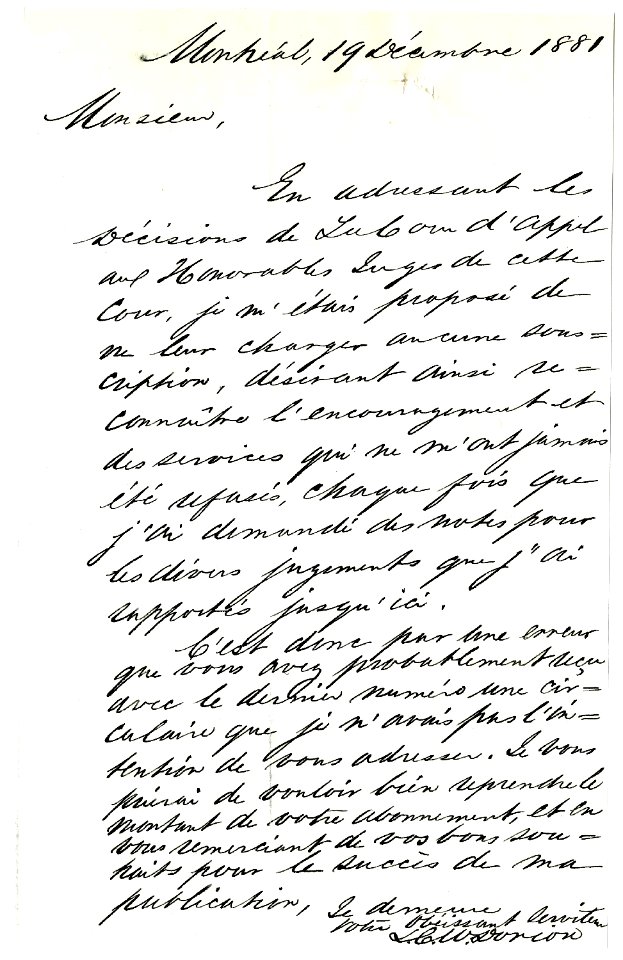 Montréal, 19 Décembre 1881
Monsieur,
En adressant les
Décisions de La Cour d'Appel
aux Honorables Juges de cette
Cour, je m'étais proposé de
ne leur charger aucune sous=
cription, désirant ainsi re=
connaître l'encouragement et
des services qui ne m'ont jamais
été refusés, chaque fois que
j'ai demandé des notes pour
les divers jugements que j'ai
rapportés jusqu'ici.
C'est donc par une erreur
que vous avez probablement reçu
avec le dernier numéro une cir=
culaire que je n'avais pas l'in=
tention de vous adresser. Je vous
prierai de vouloir bien reprendre le
montant de votre abonnement, et en
vous remerciant de vos bons sou=
haits pour le succès de ma
publication,
Je demeure
Votre Obéissant Serviteur
L.C.W. Dorion